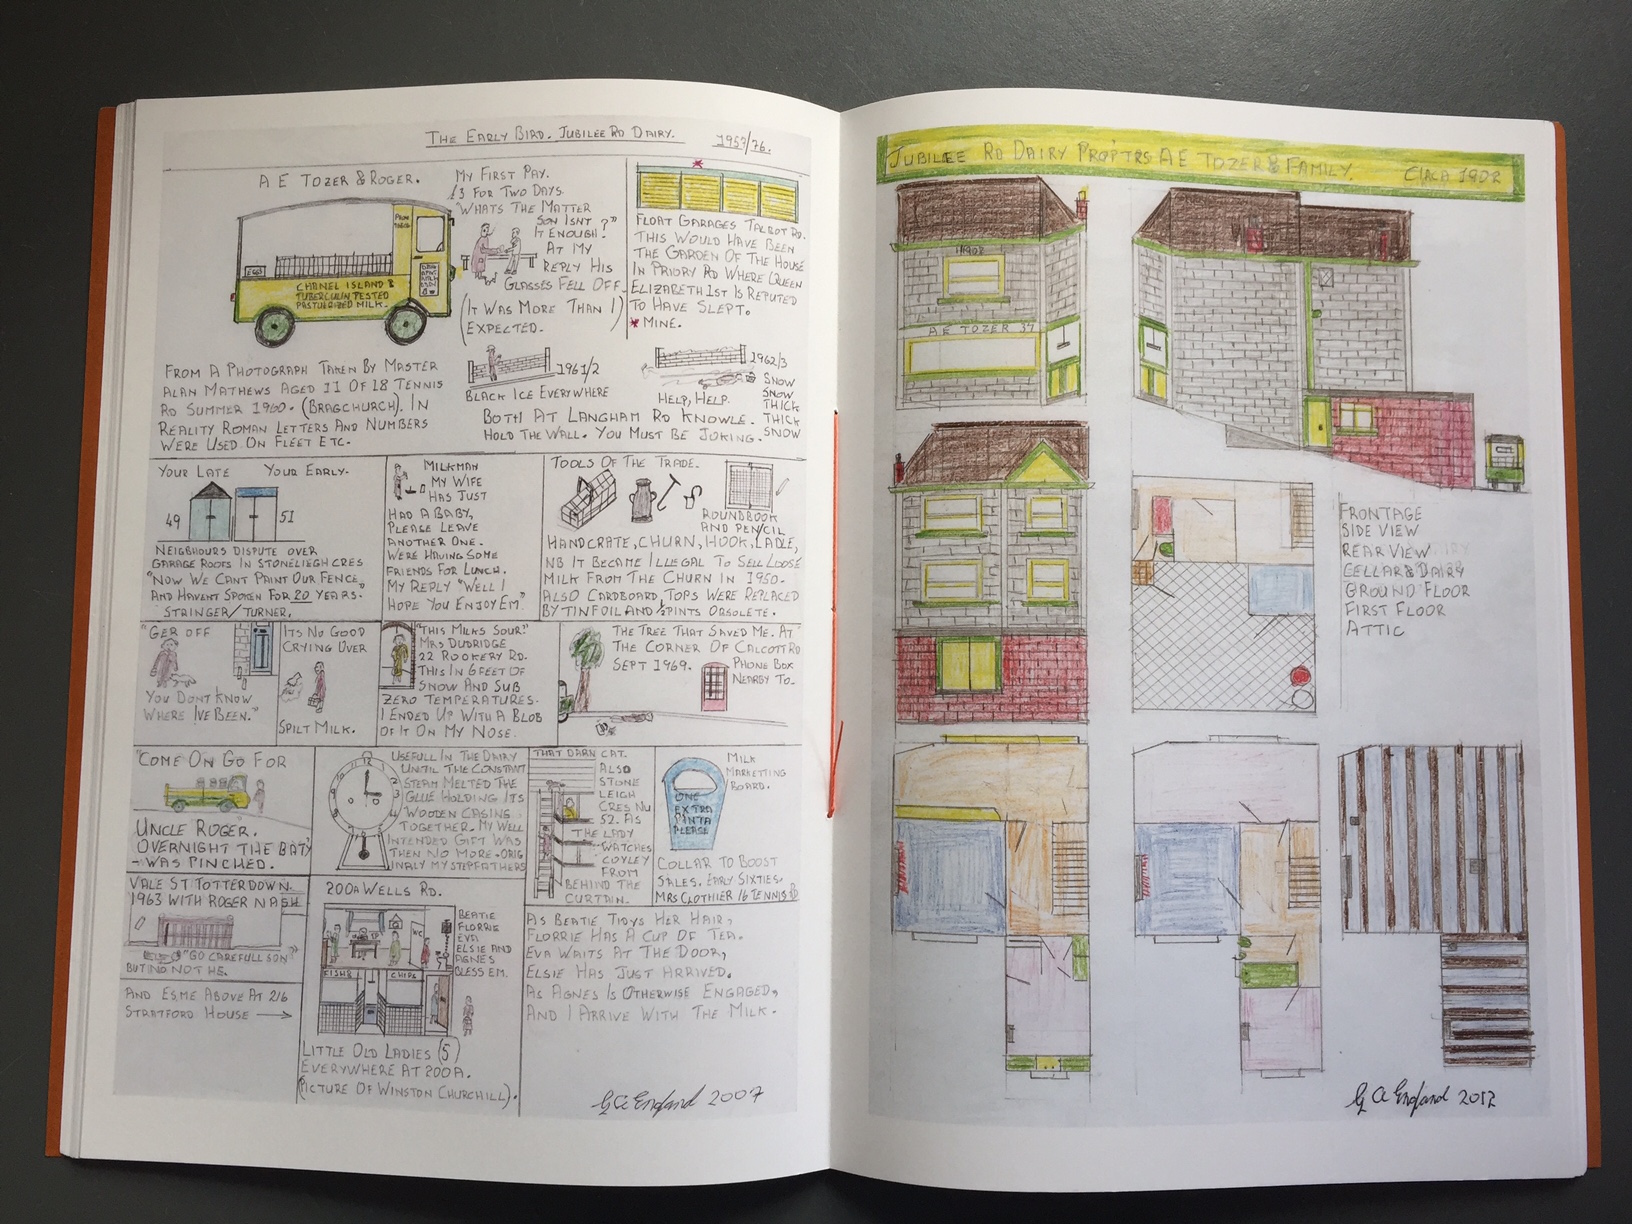 THE EARLY BIRD. JUBILEE RD DAIRY. 1957/76.
A E TOZER & ROGER.
EGGS
CHANEL ISLAND &
TUBERCULIN TESTED
PASTURIZED MILK.
MY FIRST PAY.
£3 FOR TWO DAYS.
"WHATS THE MATTER
SON ISNT
IT ENOUGH?"
AT MY
REPLY HIS
GLASSES FELL OFF.
(IT WAS MORE THAN I
EXPECTED.)
FLOAT GARAGES TALBOT RD.
THIS WOULD HAVE BEEN
THE GARDEN OF THE HOUSE
IN PRIORY RD WHERE QUEEN
ELIZABETH 1ST IS REPUTED
TO HAVE SLEPT.
* MINE.
FROM A PHOTOGRAPH TAKEN BY MASTER
ALAN MATHEWS AGED 11 OF 18 TENNIS
RD SUMMER 1960. (BRAGCHURCH). IN
REALITY ROMAN LETTERS AND NUMBERS
WERE USED ON FLEET ETC.
1961/2
BLACK ICE EVERYWHERE
1962/3
HELP, HELP.
SNOW
SNOW
THICK
THICK
SNOW
BOTH AT LANGHAM RD KNOWLE.
HOLD THE WALL. YOU MUST BE JOKING.
YOUR LATE YOUR EARLY.
49 51
NEIGHBOURS DISPUTE OVER
GARAGE ROOFS IN STONELIEGH CRES
"NOW WE CANT PAINT OUR FENCE"
AND HAVENT SPOKEN FOR 20 YEARS.
STRINGER/TURNER.
MILKMAN
MY WIFE
HAS JUST
HAD A BABY,
PLEASE LEAVE
ANOTHER ONE.
WERE HAVING SOME
FRIENDS FOR LUNCH.
MY REPLY "WELL I
HOPE YOU ENJOY EM."
TOOLS OF THE TRADE.
ROUNDBOOK
AND PENCIL
HANDCRATE, CHURN, HOOK, LADLE,
NB IT BECAME ILLEGAL TO SELL LOOSE
MILK FROM THE CHURN IN 1950.
ALSO CARDBOARD TOPS WERE REPLACED
BY TINFOIL AND ⅓ PINTS OBSOLETE.
"GER OFF
YOU DONT KNOW
WHERE IVE BEEN."
ITS NO GOOD
CRYING OVER
SPILT MILK.
"THIS MILKS SOUR!"
MRS DUDRIDGE
22 ROOKERY RD.
THIS IN 6 FEET OF
SNOW AND SUB
ZERO TEMPERATURES.
I ENDED UP WITH A BLOB
OF IT ON MY NOSE.
THE TREE THAT SAVED ME. AT
THE CORNER OF CALCOTT RD
SEPT 1969.
PHONE BOX
NEARBY TO.
"COME ON GO FOR
UNCLE ROGER.
OVERNIGHT THE BATY
WAS PINCHED.
USEFULL IN THE DAIRY
UNTIL THE CONSTANT
STEAM MELTED THE
GLUE HOLDING ITS
WOODEN CASING
TOGETHER. MY WELL
INTENDED GIFT WAS
THEN NO MORE. ORIG
INALY MY STEPFATHERS
THAT DARN CAT.
ALSO
STONE
LEIGH
CRES NU
52. AS
THE LADY
WATCHES
COYLEY
FROM
BEHIND THE
CURTAIN.
MILK
MARKETTING
BOARD.
ONE
EXTRA
PINTA
PLEASE
COLLAR TO BOOST
SALES. EARLY SIXTIES.
MRS CLOTHIER 16 TENNIS RD
VALE ST TOTTERDOWN.
1963 WITH ROGER NASH
"GO CAREFULL SON"
BUT NO NOT HE.
AND ESME ABOVE AT 216
STRATFORD HOUSE →
200A WELLS RD.
WC
FISH & CHIPS
BEATIE
FLORRIE
EVA
ELSIE AND
AGNES
BLESS EM.
LITTLE OLD LADIES (5)
EVERYWHERE AT 200A.
(PICTURE OF WINSTON CHURCHILL).
AS BEATIE TIDYS HER HAIR,
FLORRIE HAS A CUP OF TEA.
EVA WAITS AT THE DOOR,
ELSIE HAS JUST ARRIVED.
AS AGNES IS OTHERWISE ENGAGED,
AND I ARRIVE WITH THE MILK.
G A England 2007
JUBILEE RD DAIRY PROP'TRS A E TOZER & FAMILY. CIRCA 1902
1902
A E TOZER 37
FRONTAGE
SIDE VIEW
REAR VIEW
CELLAR & DAIRY
GROUND FLOOR
FIRST FLOOR
ATTIC
G A England 2012